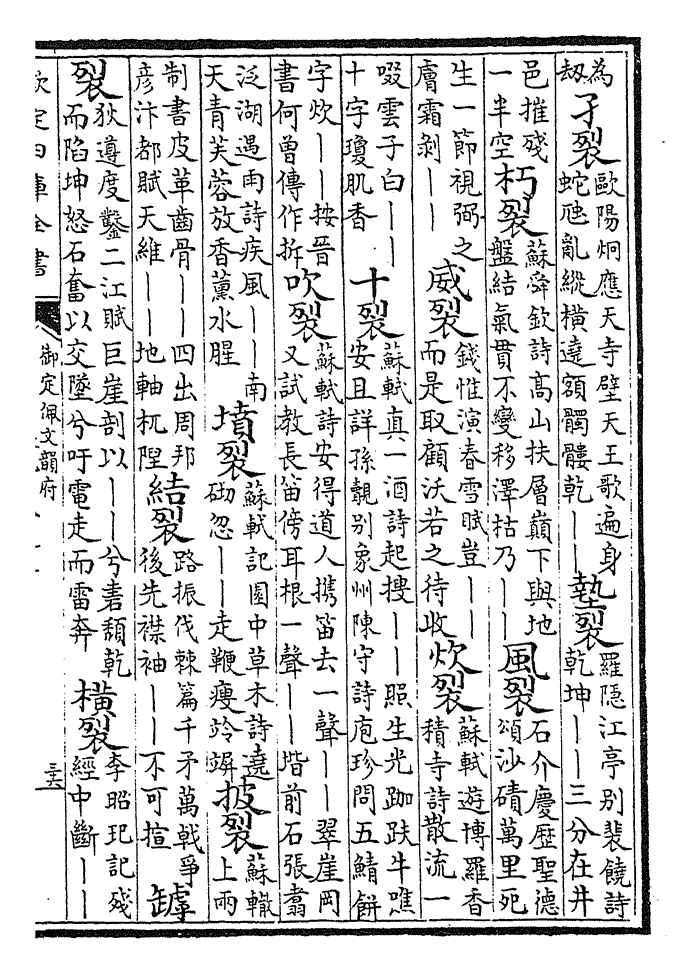 為刼 孑裂 歐陽炯應天寺壁天王歌遍身蛇虺亂縱橫遶額髑髏乾｜｜ 墊裂 羅隱江亭別裴饒詩乾坤｜｜三分在井
邑摧殘一半空 朽裂 蘇舜欽詩高山扶層巔下與地盤結氣貫不變移澤枯乃｜｜ 風裂 石介慶歷聖德頌沙磧萬里死
生一節視弼之膚霜剝｜｜ 威裂 錢惟演春雪賦豈｜｜而是取顧沃若之待收 炊裂 蘇軾遊博羅香積寺詩散流一
啜雲子白｜｜十字瓊肌香 十裂 蘇軾真一酒詩起搜｜｜照生光跏趺牛噍安且詳孫覿别象州陳守詩庖珍問五鯖餅
字炊｜｜按晉書何曾傳作拆 吹裂 蘇軾詩安得道人携笛去一聲｜｜翠崖岡又試教長笛傍耳根一聲｜｜堦前石張翥
泛湖遇雨詩疾風｜｜南天青芙蓉放香薰水腥 墳裂 蘇軾記園中草木詩遶砌忽｜｜走鞭瘦竛竮 披裂 蘇轍上兩
制書皮革齒骨｜｜四出周邦彦汴都賦天維｜｜地軸杌隉 結裂 路振伐棘篇千矛萬戟爭後先襟袖｜｜不可揎 罅
裂 狄遵度鑿二江賦巨崖剖以｜｜兮砉頹乾而陷坤怒石奮以交墜兮吁電走而雷奔 橫裂 李昭玘記殘經中斷｜｜
欽定四庫全書 御定佩文韻府 三六